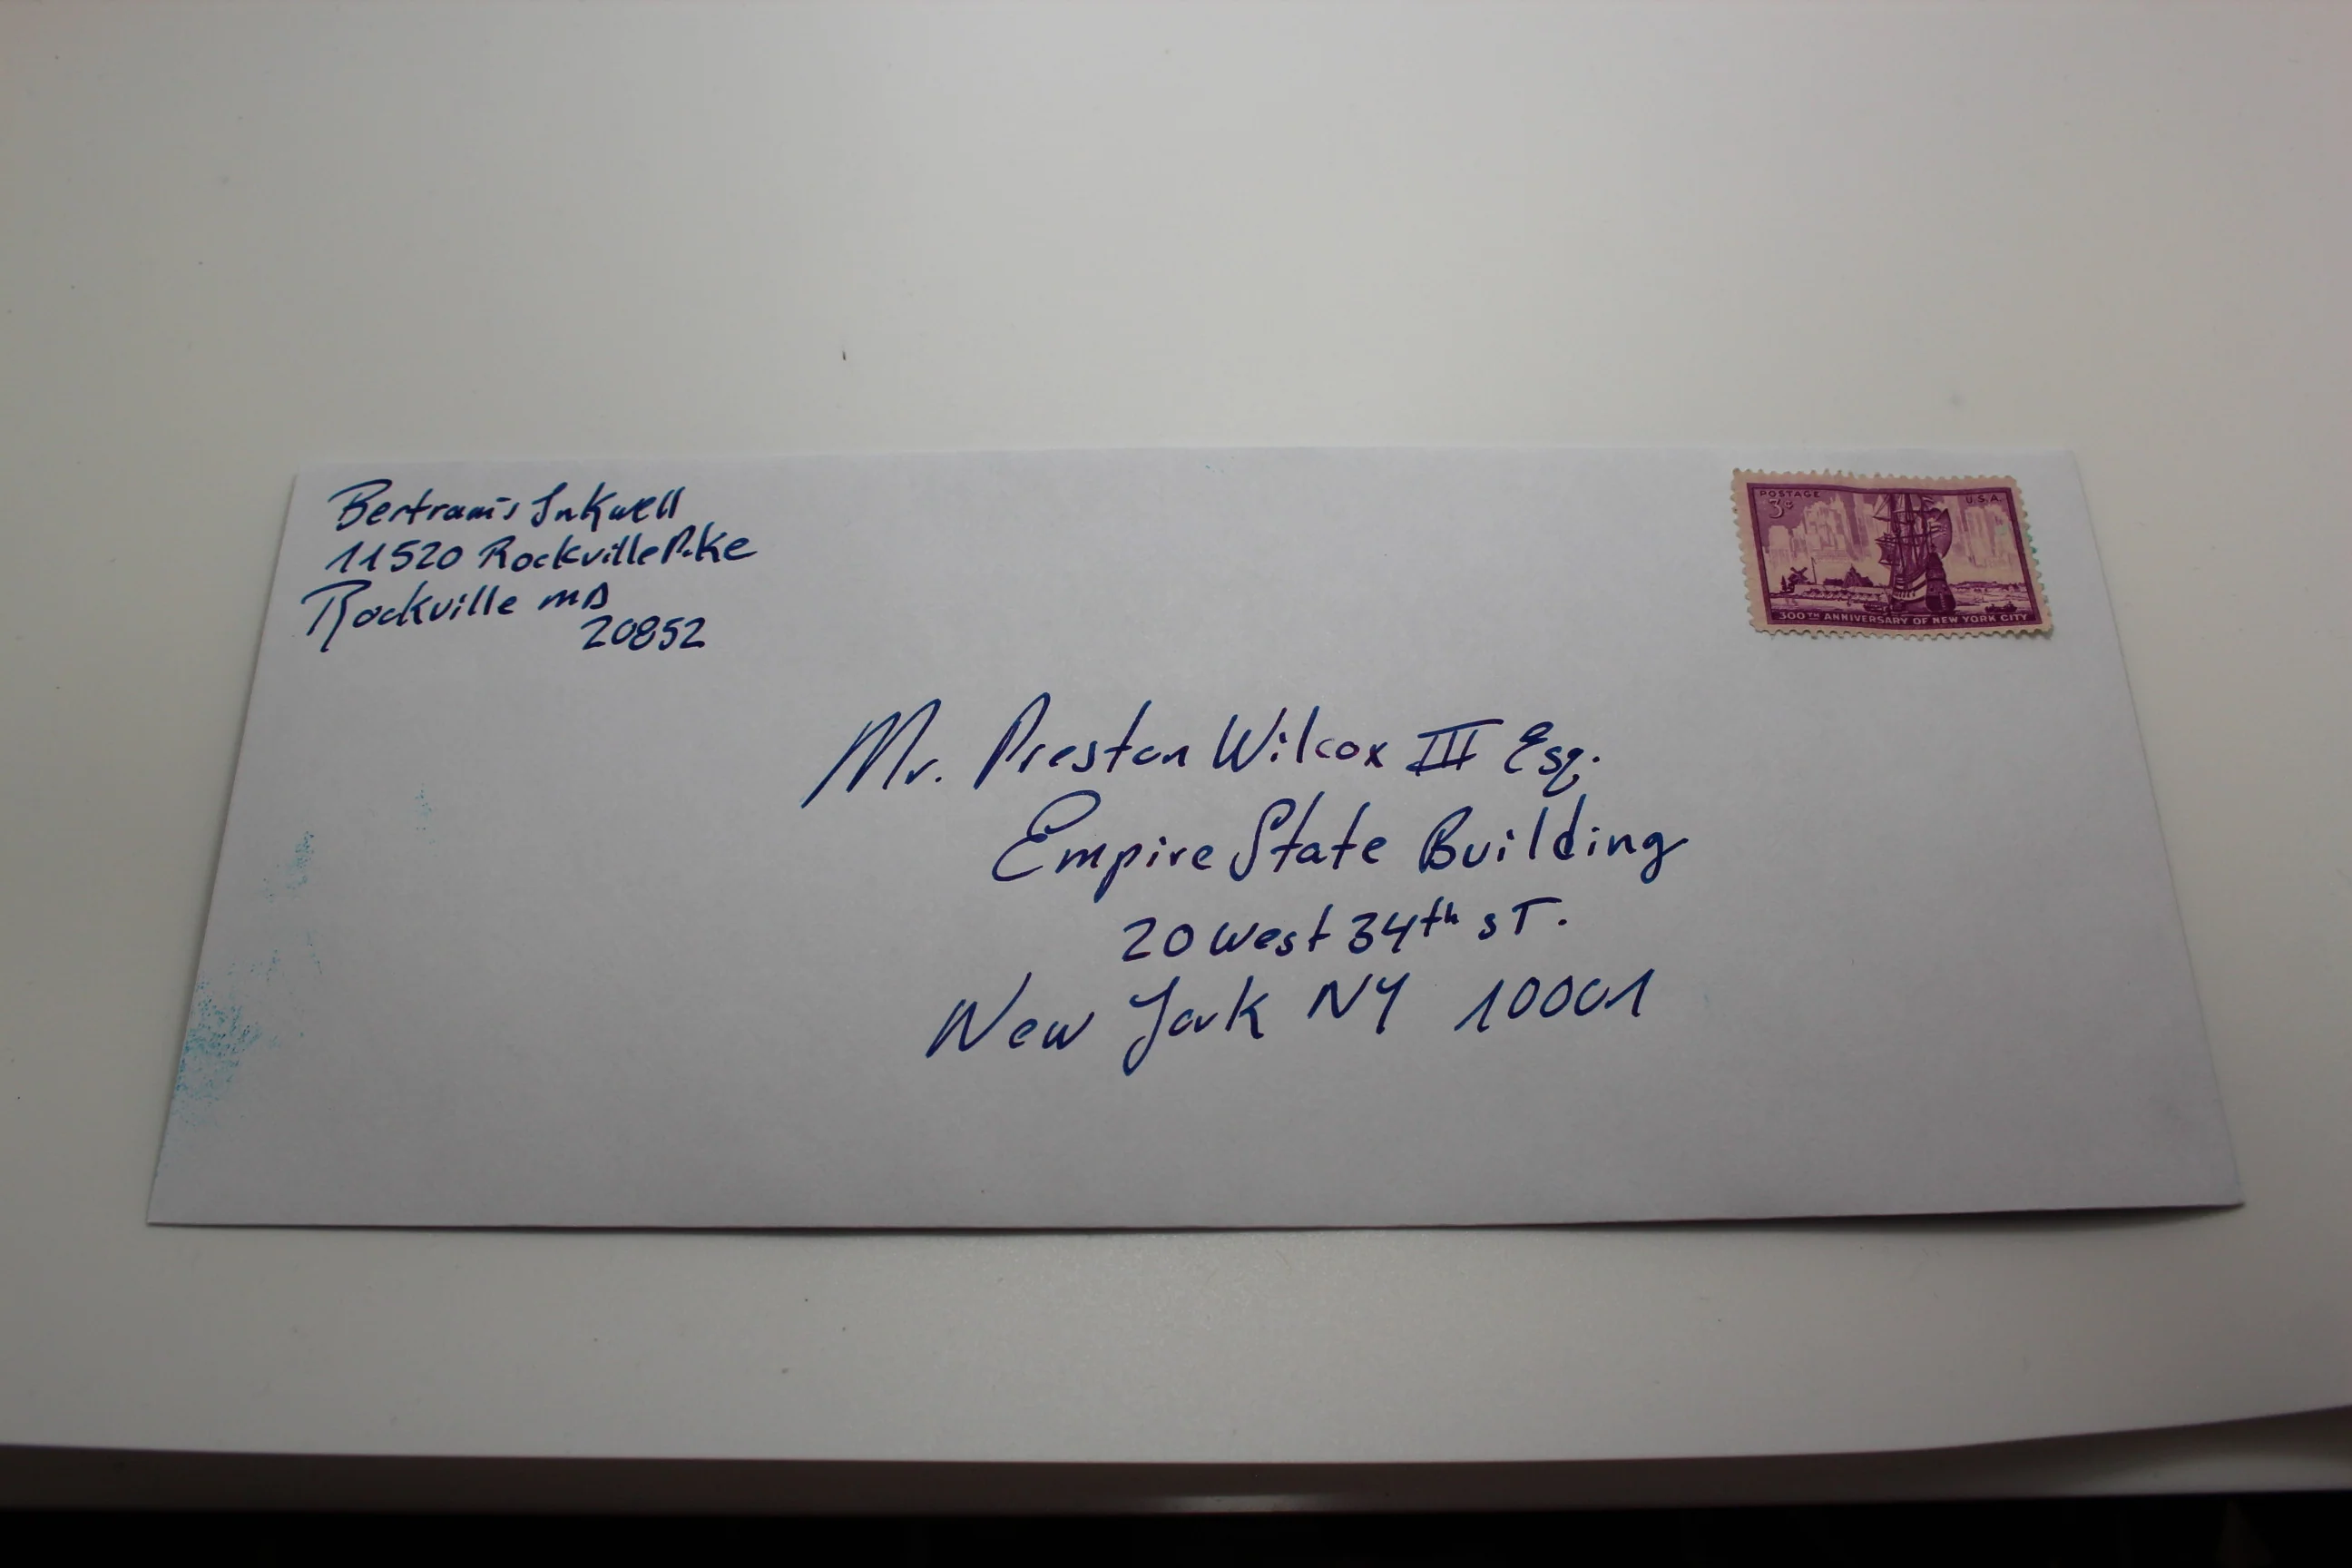 Bertram's Inkwell
11520 Rockville Pike
Rockville MD
20852
POSTAGE U.S.A.
3¢
300TH ANNIVERSARY OF NEW YORK CITY
Mr. Preston Wilcox III Esq.
Empire State Building
20 West 34th ST.
New York NY 10001